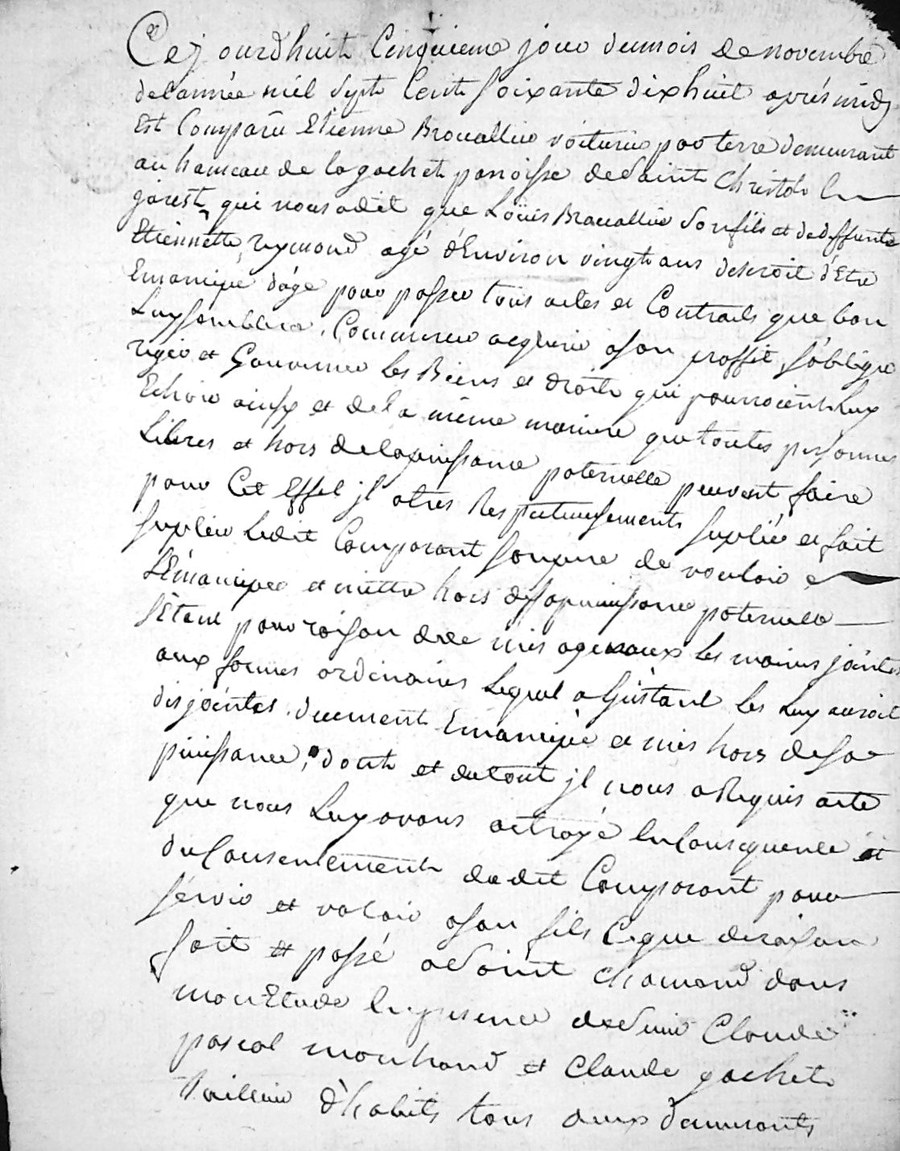 Cejourdhuit Cinquieme jour dumois de novembre
delannée mil Sept Cent Soixante dixhuit aprés midy
Est Comparu Etienne Brouallier voiturier par terre demeurant
au hameau de la gachet paroisse de Saint Christ
jarest, qui nous adit que Louis Brouallier Son fils et de deffunte
Etiennette Reymond agé d'Environ vingt ans desiroit d'Etre
Emancipé d'age pour passer tous actes et Contrats que bon
Luy Semblera, Commercer acquerir ason proffit, s'obliger
regir et Gouverner les Biens et droits qui pourroient Luy
Echoir ainsy et de la même maniere que toutes personnes
Libres et hors de la puissance paternelle peuvent faire
pour Cet Effet jl a tres Respectueusements Suplié et fait
Suplier Ledit Comparant Son pere de vouloir
L'Emanciper et mettre hors de sa puissance paternelle
S'Etant pour raison de ce mis a genoux les mains jointes
aux formes ordinaires Lequel a L'instant les Luy auroit
disjointes. duement Emancipé et mis hors de Sa
puissance, dont et du tout jl nous a Requis acte
que nous Luy avons octroyé En Consequence et
du Consentement dudit Comparant pour
Servir et valoir a Son fils Ce que de raison
fait et passé a Saint Chamond dans
mon Etude En presence de Sieur Claude
pascal marchand et Claude gachet
tailleur d'habits tous deux demeurants